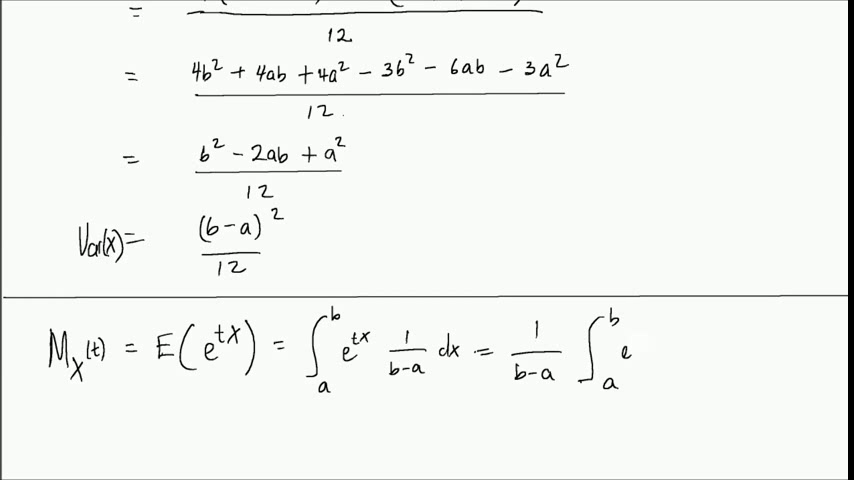 = 12
= 4b² + 4ab + 4a² - 3b² - 6ab - 3a² / 12
= b² - 2ab + a² / 12
Var(X) = (b-a)² / 12
M_X(t) = E(e^{tX}) = ∫_a^b e^{tx} 1/(b-a) dx = 1/(b-a) ∫_a^b e